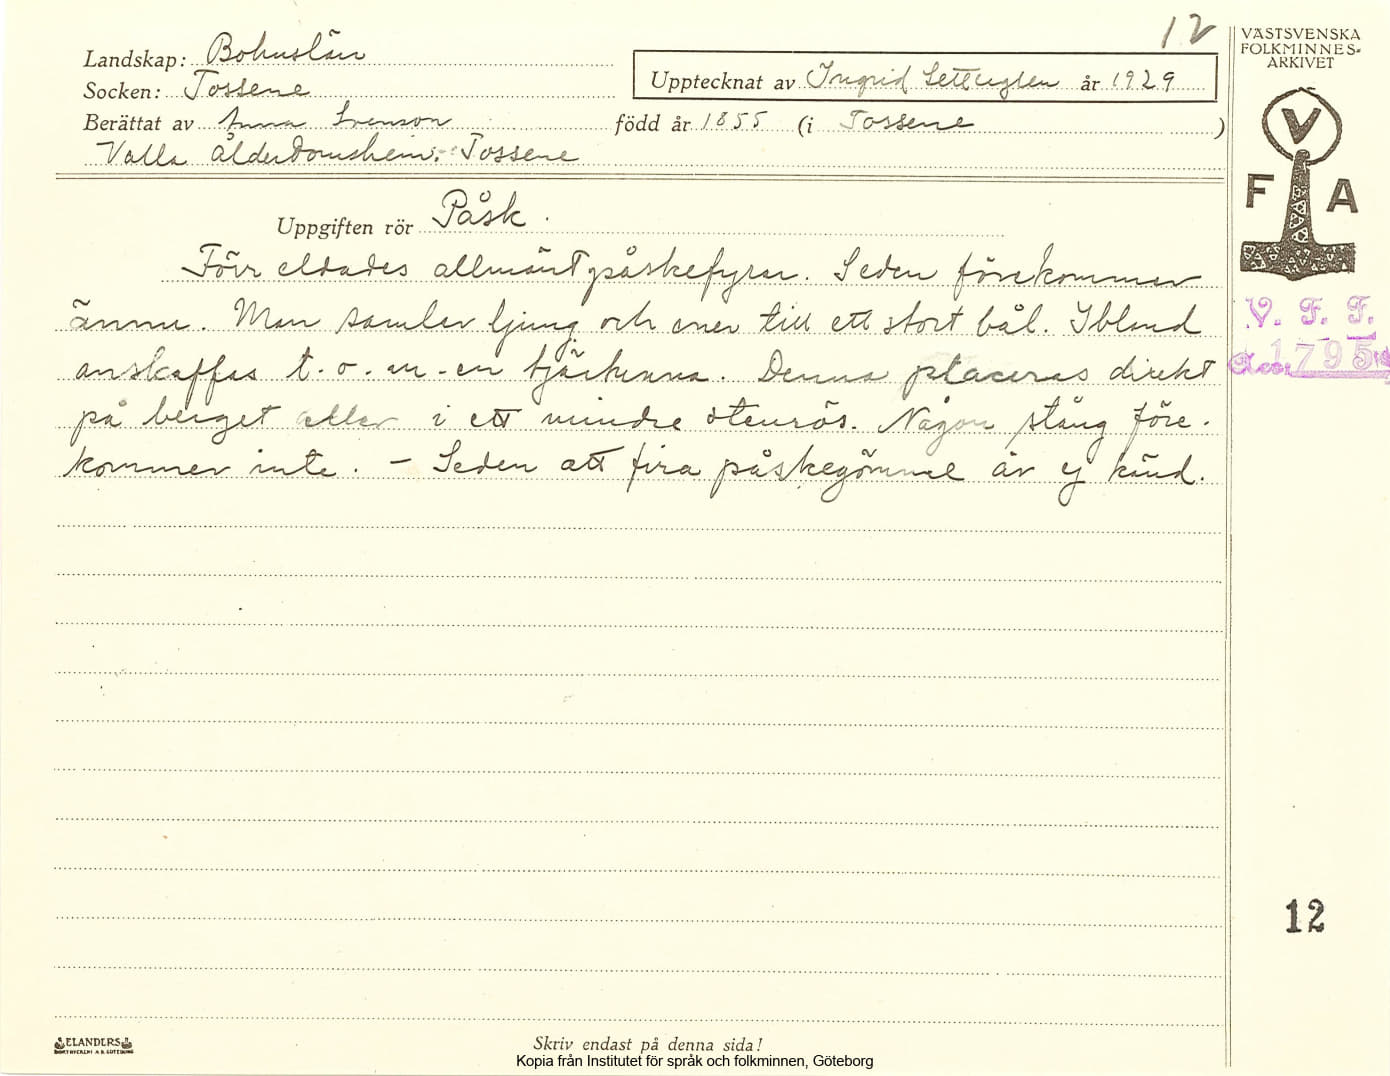 12
VÄSTSVENSKA
FOLKMINNES-
ARKIVET
Landskap: Bohuslän
Socken: Tossene
Upptecknat av Ingrid år 1929
Berättat av Anna Svenson född år 1855 (i Tossene)
Valla Ålderdomshem. Tossene
V
F A
Uppgiften rör Påsk.
Förr eldades allmänt påskefyrar. Seden förekommer
ännu. Man samlar ljung och ener till ett stort bål. Ibland
anskaffas t.o.m. en tjärtunna. Denna placeras direkt
på berget eller i ett mindre stenrös. Någon stång före-
kommer inte. - Seden att fira påskegömme är ej känd.
V. F. F.
Acc. 1795
12
ELANDERS
BOKTRYCKERI A.B. GÖTEBORG
Skriv endast på denna sida!
Kopia från Institutet för språk och folkminnen, Göteborg